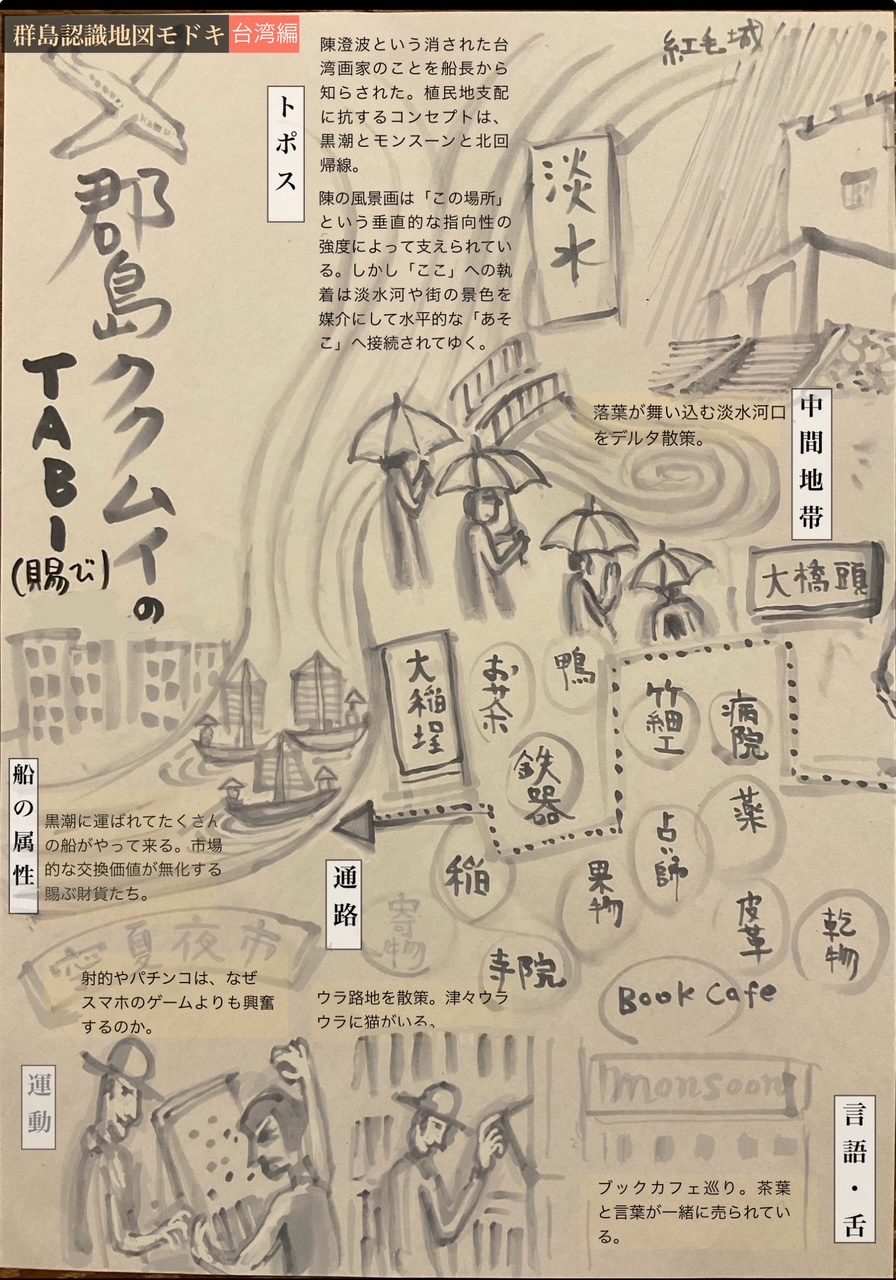 群島認識地図モドキ 台湾編
紅毛城
トポス
陳澄波という消された台
湾画家のことを船長から
知らされた。植民地支配
に抗するコンセプトは、
黒潮とモンスーンと北回
帰線。
陳の風景画は「この場所」
という垂直的な指向性の
強度によって支えられてい
る。しかし「ここ」への執
着は淡水河や街の景色を
媒介にして水平的な「あそ
こ」へ接続されてゆく。
淡水
郡島ククムイの
TABI
(賜び)
中間地帯
落葉が舞い込む淡水河口
をデルタ散策。
大橋頭
大稲埕
お茶
鴨
竹細工
病院
鉄器
薬
占い師
稲
果物
皮革
乾物
寄物
寺院
Book Cafe
船の属性
黒潮に運ばれてたくさん
の船がやって来る。市場
的な交換価値が無化する
賜ぶ財貨たち。
通路
ウラ路地を散策。津々ウラ
ウラに猫がいる。
夏夜市
射的やパチンコは、なぜ
スマホのゲームよりも興奮
するのか。
運動
monsoon
言語・舌
ブックカフェ巡り。茶葉
と言葉が一緒に売られてい
る。